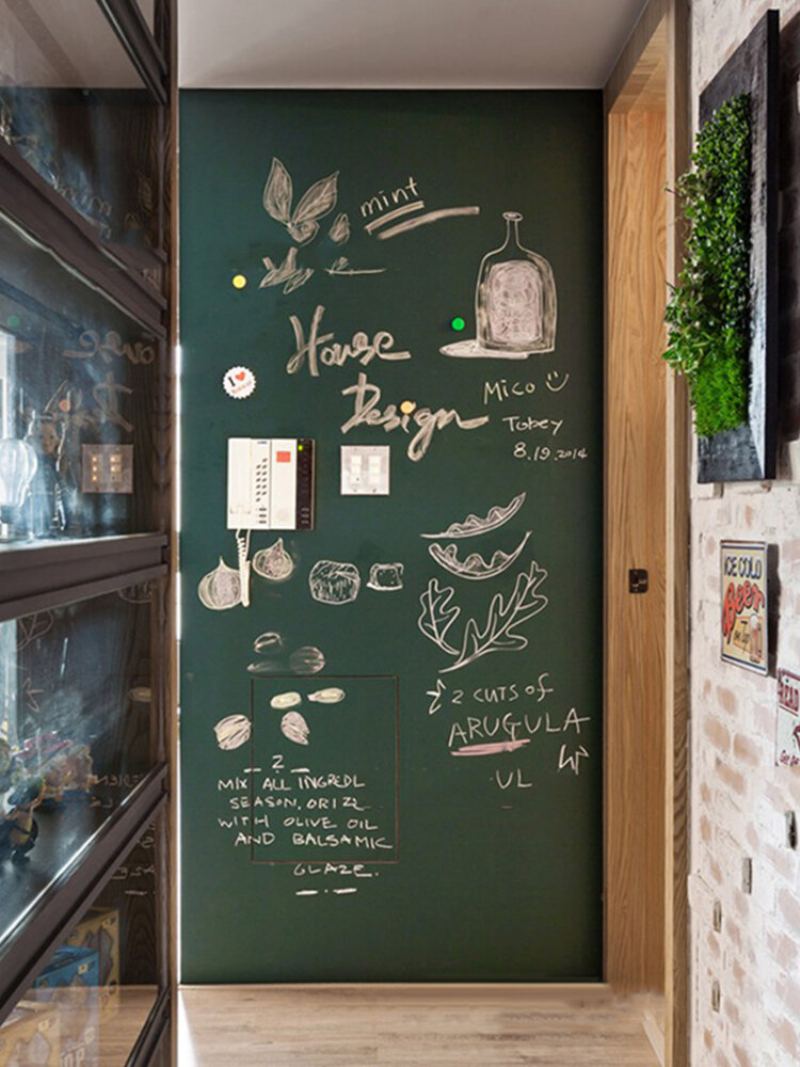 mint
House
Design
Mico
Tobey
8.19.2014
I
2 CUTS OF
ARUGULA
UL
2
MIX ALL INGREDL
SEASON, ORIZZ
WITH OLIVE OIL
AND BALSAMIC
GLAZE.
ICE COLD
Beer
on Tap